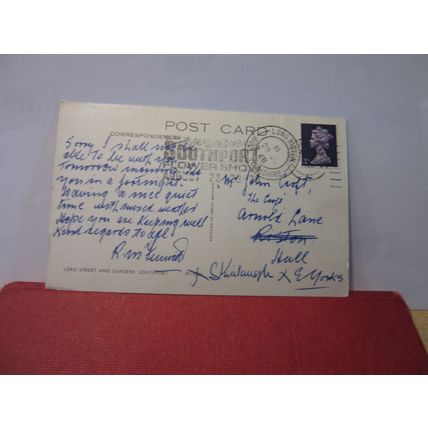 POST CARD
CORRESPONDENCE
SOUTHPORT
FLOWER SHOW
Sorry I shall not be
able to be with you
Tomorrow morning, see
you in a fortnight.
Having a nice quiet
time with mixed weather
Hope you are keeping well
Kind regards to all
Mr John
The
Arnold Lane
Riston
Hull
E Yorks
LORD STREET AND GARDENS, SOUTHPORT